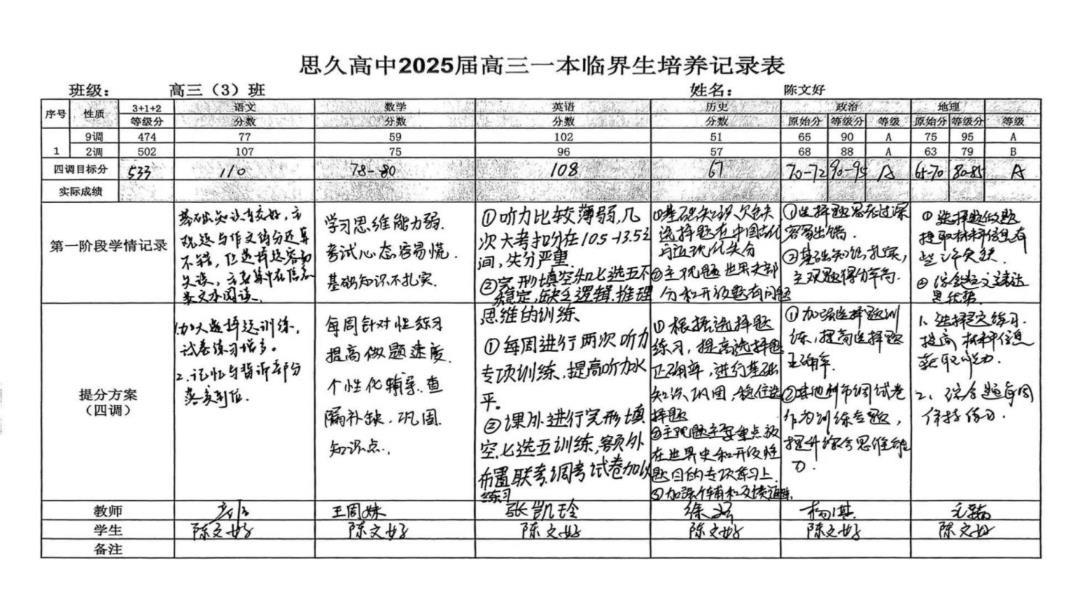 思久高中2025届高三一本临界生培养记录表
班级： 高三（3）班 姓名： 陈文好
序号 性质 3+1+2 语文 数学 英语 历史 政治 地理
等级分 分数 分数 分数 分数 原始分 等级分 等级 原始分 等级分 等级
1
9调 474 77 59 102 51 65 90 A 75 95 A
2调 502 107 75 96 57 68 88 A 63 79 B
四调目标分 533 110 78-80 108 67 70-72 90-95 A 65-70 80-85 A
实际成绩
第一阶段学情记录
基础知识
观题与作文得分还算
不错，但选择题容易
失误，主要集中在信息
类文本阅读。
学习思维能力弱．
考试心态容易慌．
基础知识不扎实．
①听力比较薄弱，几
次大考扣分在10.5-13.5之
间，失分严重．
②完形填空和七选五不
稳定，缺乏逻辑．推理
思维的训练．
①基础知识欠缺
选择题在中国古代
与近现代失分
②主观题世界史部
分和开放题有问题
①选择题思考过深
容易出错．
②基础知识扎实，
主观题得分率高．
①选择题做题
提取材料信息有
些许欠缺．
②综合题文字表达
是优势．
提分方案
（四调）
1.加大选择题训练，
试卷练习增多。
2.记忆与背诵部分
落实到位．
每周针对性练习
提高做题速度．
个性化辅导．查
漏补缺．巩固
知识点．
①每周进行两次听力
专项训练．提高听力水
平。
②课外进行完形填
空七选五训练，额外
布置联考．调考试卷加以
练习
①根据选择题
练习，提高选择题
正确率，进行基础
知识巩固，稳住选
择题
②主观题主要重点放
在世界史和开放性
题目的专项练习上
③加强个辅和及时
①加强选择题训
练，提高选择题
正确率．
②其他
作为训练专题，
提升综合思维能
力．
1、选择题练习．
提高材料信息
获取能力．
2、综合题每周
保持练习．
教师 王周姝 张凯玲 徐
学生 陈文好 陈文好 陈文好 陈文好 陈文好 陈文好
备注